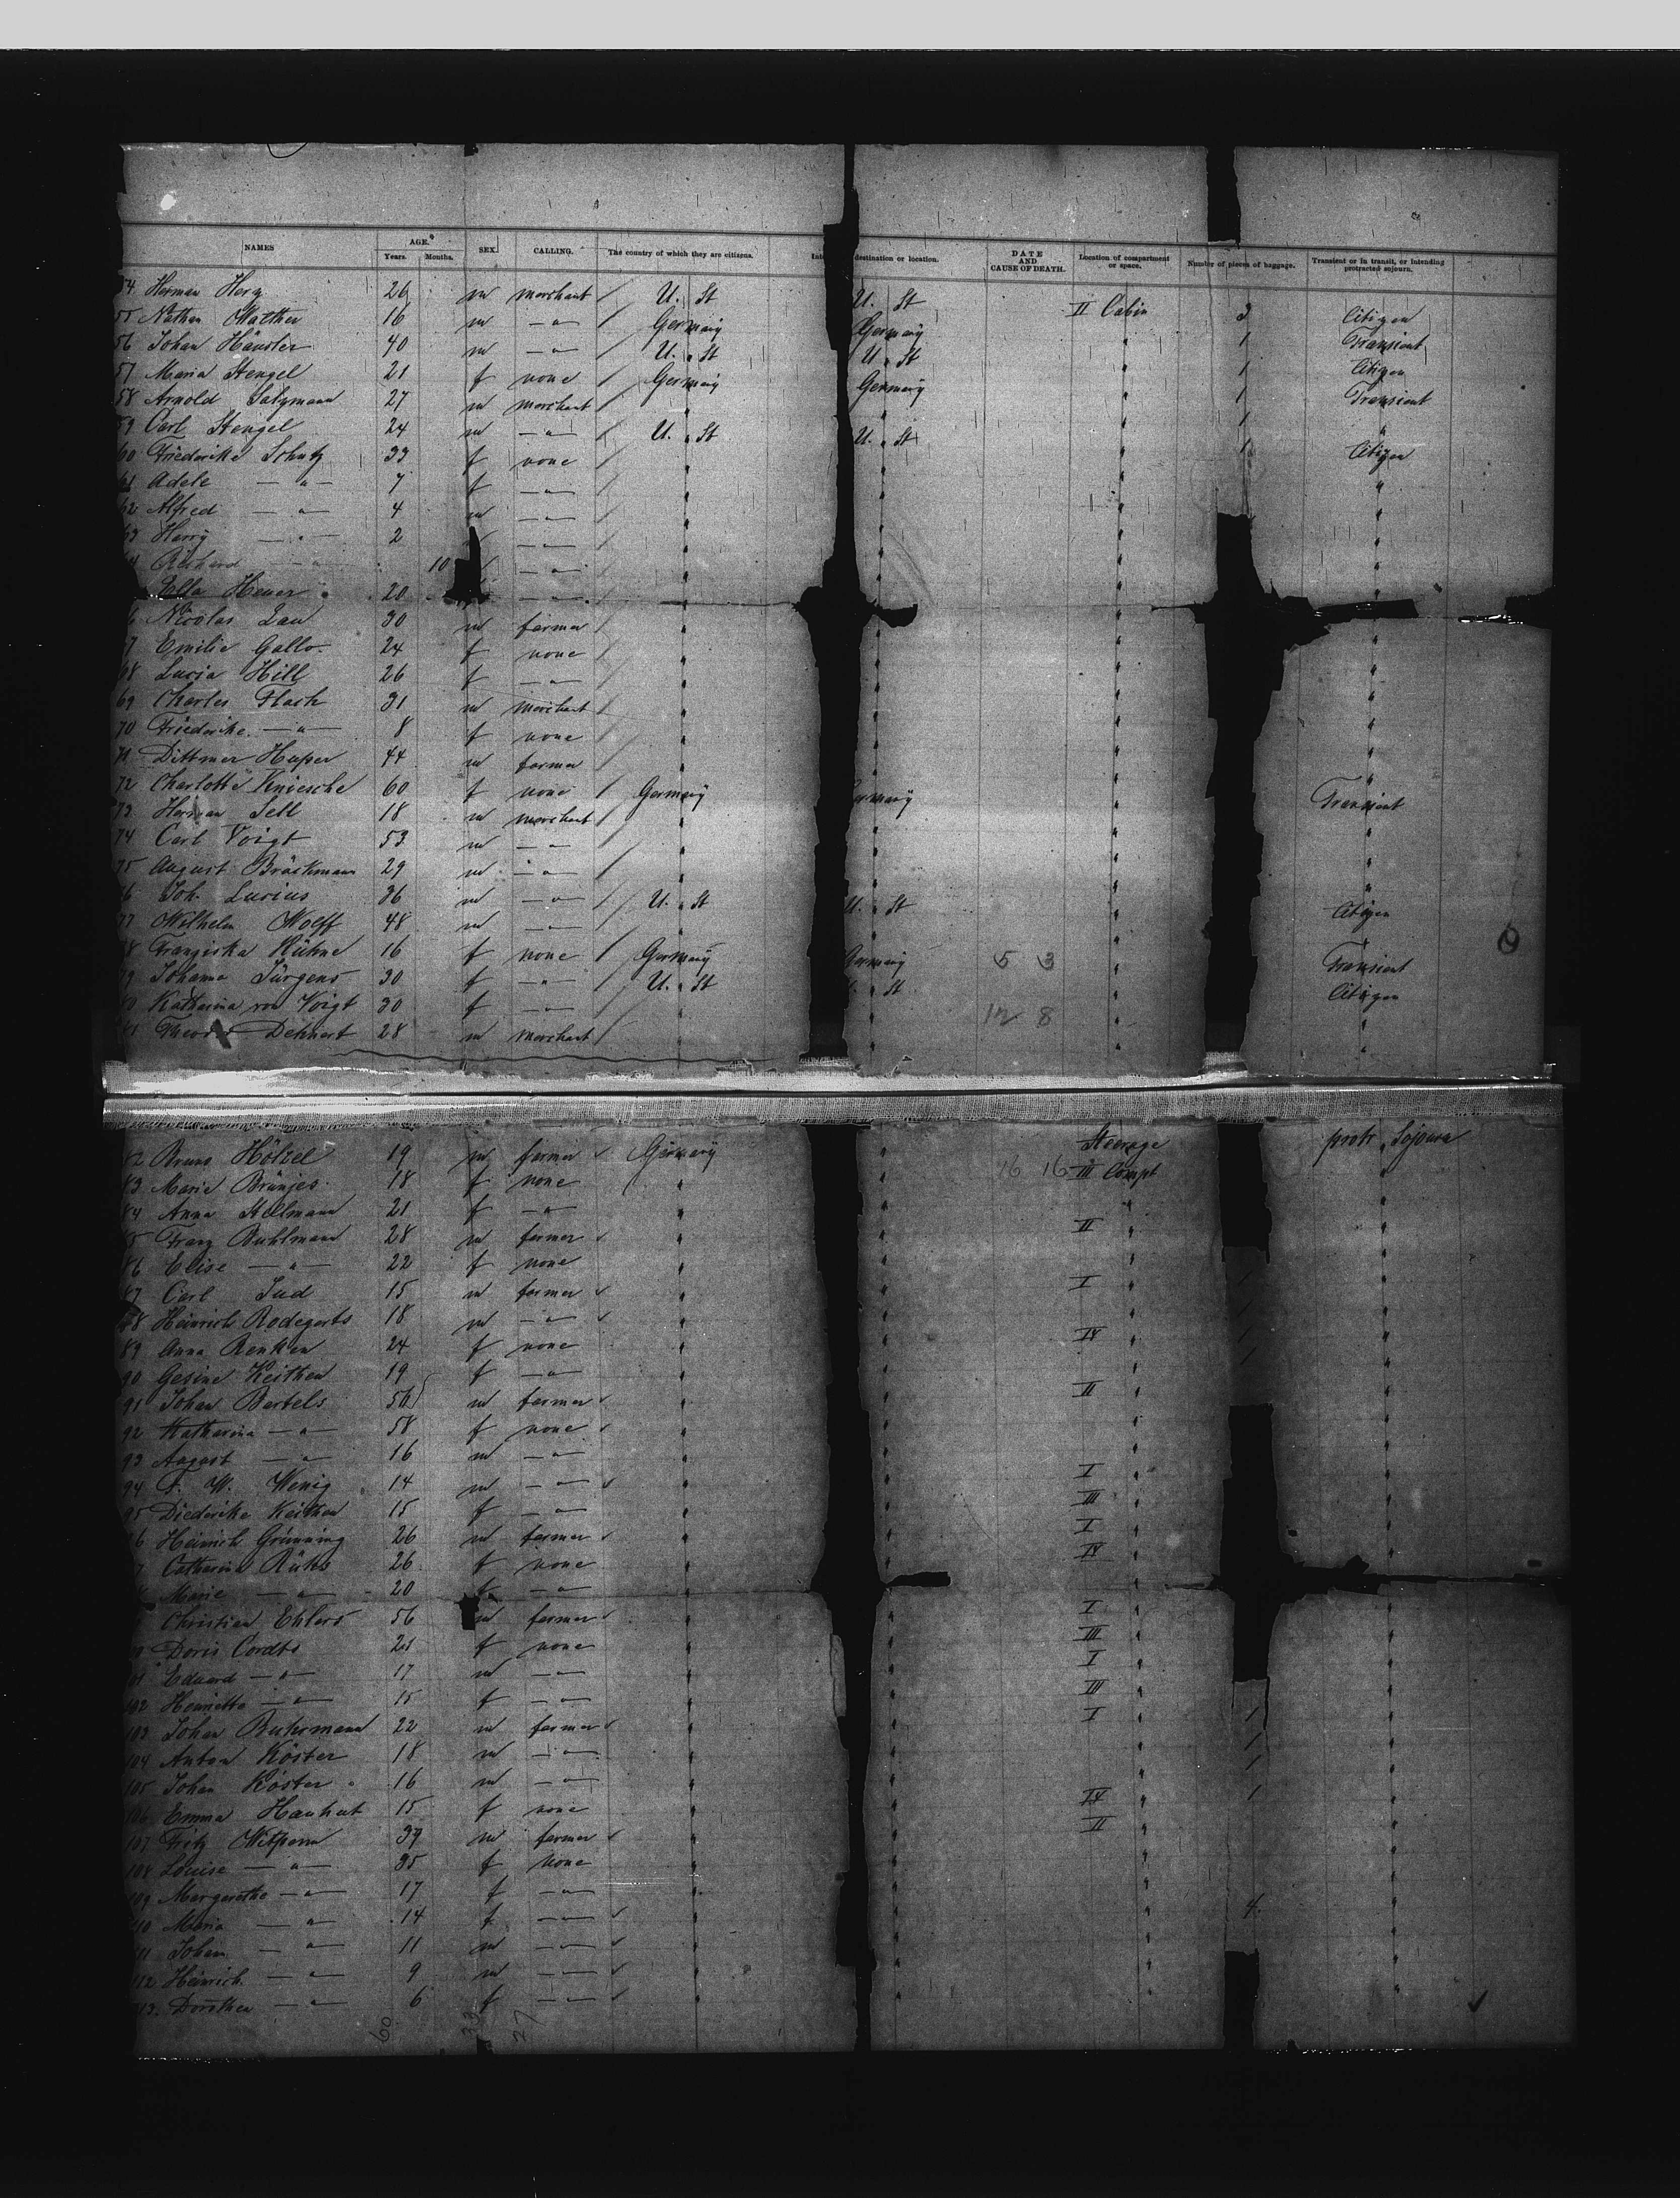 NAMES AGE. Years. Months. SEX. CALLING. The country of which they are citizens. destination or location. DATE AND CAUSE OF DEATH. Location of compartment or space. Number of pieces of baggage. Transient or in transit, or intending protracted sojourn.
54 Herman Herz 26 m merchant / U. St U. St II Cabin 3 Citizen
55 Nathan Walther 16 m — " — / Germany Germany " 1 Transient
56 Johan Häusler 40 m — " — / U. St U. St " 1 Citizen
57 Maria Stengel 21 f none / Germany Germany " 1 Transient
58 Arnold Salzmann 27 m merchant / " " " 1 "
59 Carl Stengel 24 m — " — / U. St U. St " 1 Citizen
60 Friederike Schutz 33 f none / " " " "
61 Adele — " — 7 f — " — / " " " "
62 Alfred — " — 4 m — " — / " " " "
63 Harry — " — 2 — " — / " " " "
64 Richard — " — 10 — " — / " " " "
Heuer 20 — " —
66 Nicolas Lau 30 m farmer / " " " "
67 Emilie Gallo 24 f none / " " " "
68 Lucia Hill 26 f — " — / " " " "
69 Charles Flach 31 m merchant / " " " "
70 Friederike — " — 8 f none / " " " "
71 Dittmer Huper 44 m farmer / " " " "
72 Charlotte Kniesche 60 f none / Germany Germany " Transient
73 Herman Sell 18 m merchant / " " " "
74 Carl Voigt 53 m — " — / " " " "
75 August Bräckmann 29 m — " — / " " " "
76 Joh. Lucius 36 m — " — / U. St U. St " Citizen
77 Wilhelm Wolff 48 m — " — / " " " "
78 Franziska Kühne 16 f none / Germany Germany 5 3 " Transient
79 Johanna Jürgens 30 f — " — / U. St U. St " Citizen
80 Katharina von Voigt 30 f — " — / " " 12 8 " "
81 Theodor Dehnert 28 m merchant / " " " "
82 Bruno Hölzel 19 m farmer Germany Steerage protr. Sojourn
83 Marie Brünjes 18 f none " " 16 16 III Compt "
84 Anna Stellmann 21 f — " — " " " "
85 Franz Buhlmann 28 m farmer " " II " "
86 Elise — " — 22 f none " " " "
87 Carl Jud 15 m farmer " " I " "
88 Heinrich Rodegerts 18 m — " — " " " "
89 Anna Renken 24 f none " " IV " "
90 Gesine Keithen 19 f — " — " " " "
91 Johan Bartels 56 m farmer " " II " "
92 Katharina — " — 58 f none " " " "
93 August — " — 16 m — " — " " " "
94 F. W. Wenig 14 m — " — " " I " "
95 Diederike Keithen 15 f — " — " " III " "
96 Heinrich Grünning 26 m farmer " " I " "
97 Catharina Rüks 26 f none " " IV " "
98 Marie — " — 20 f — " — " " " "
Christian Ehlers 56 m farmer " " I " "
Doris Cordts 21 f none " " III " "
101 Eduard — " — 17 m — " — " " I " "
102 Henriette — " — 15 f — " — " " III " "
103 Johan Buhrmann 22 m farmer " " I " 1 "
104 Anton Köster 18 m — " — " " " 1 "
105 Johan Köster 16 m — " — " " " 1 "
106 Emma 15 f none " " IV " 1 "
107 Fritz 39 m farmer " " II " "
108 Louise — " — 35 f none " " " "
109 Margarethe — " — 17 f — " — " " " "
110 Maria — " — 14 f — " — " " " 4. "
111 Johan — " — 11 m — " — " " " "
112 Heinrich — " — 9 m — " — " " " "
113. Dorothea — " — 6 f — " — " " "
60 33 27